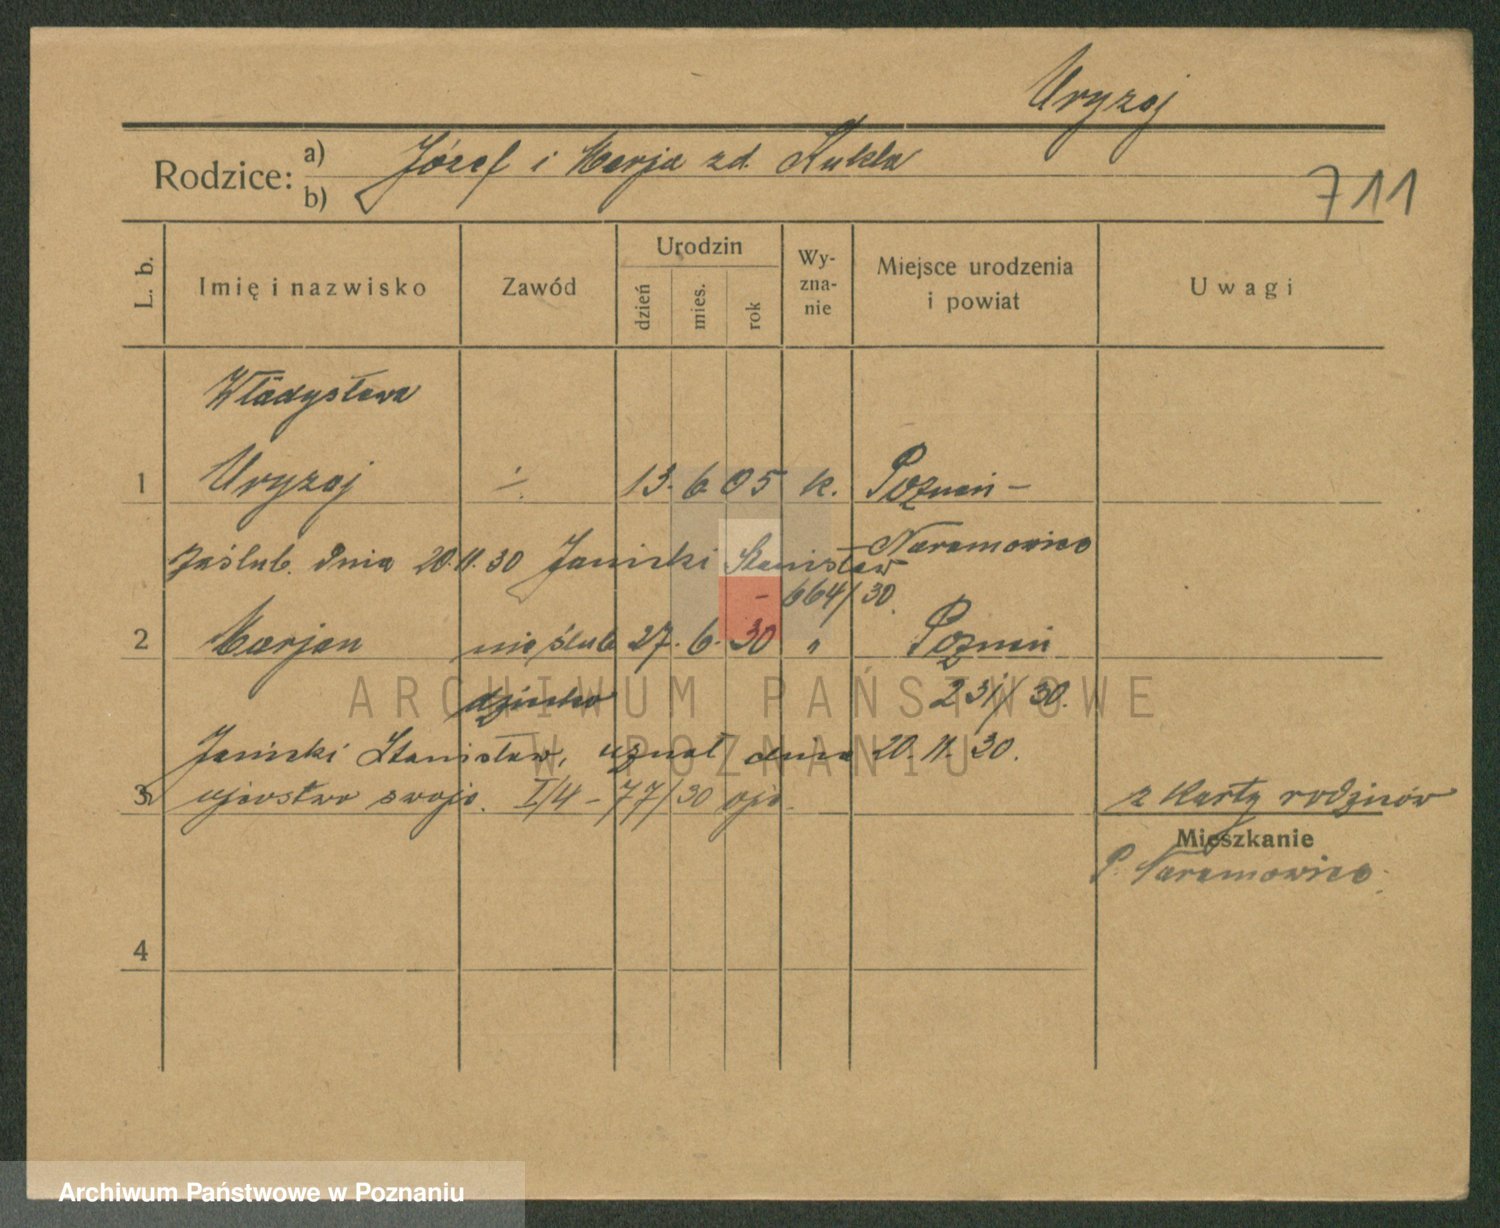 Uryzaj
Rodzice: a) Józef i Marja zd. Kukla
b)
711
L. b.
Imię i nazwisko
Zawód
Urodzin
dzień
mies.
rok
Wy-
zna-
nie
Miejsce urodzenia
i powiat
Uwagi
Władysława
1 Uryzaj ÷ 13. 6. 05 k. Poznań –
Naramowice
zaślub. dnia 20.11.30 Janicki Stanisław
– 664/30.
2 Marjan nieślub 27. 6. 30 " Poznań
dziecko 231/30.
Janicki Stanisław, uznał dnia 20.11.30.
3 ojcostwo swoje. I/4 – 77/30 z karty rodziców
Mieszkanie
P. Naramowice.
4
ARCHIWUM PAŃSTWOWE
W POZNANIU
Archiwum Państwowe w Poznaniu